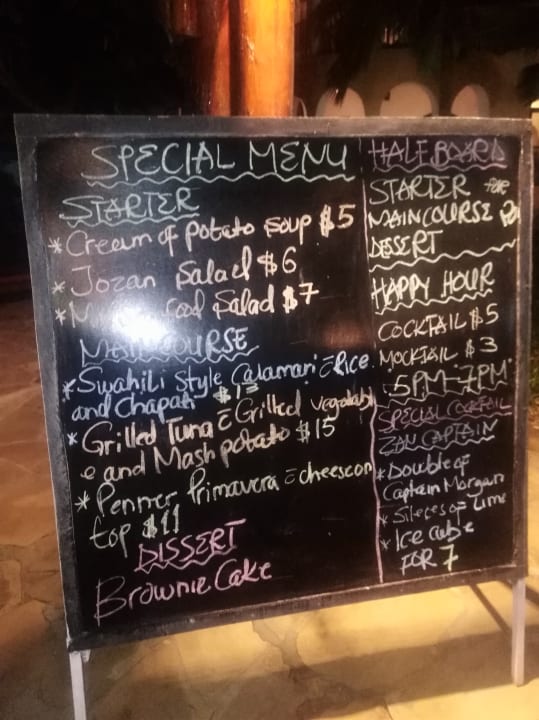 SPECIAL MENU
STARTER
* Cream of potato soup $5
* Jozan Salad $6
* Salad $7
MAIN COURSE
* Swahili Style Calamari c̄ Rice
and Chapati
* Grilled Tuna c̄ Grilled vegetabl
e and Mash potato $15
* Penner Primavera c̄ cheese on
top $11
DISSERT
Brownie Cake
HALF BOARD
STARTER
MAIN COURSE
DESSERT
HAPPY HOUR
COCKTAIL $5
MOCKTAIL $3
5PM-7PM
SPECIAL COCKTAIL
ZAN CAPTAIN
* Double of
Captain Morgan
* Sileces of Lime
* Ice cube
FOR 7